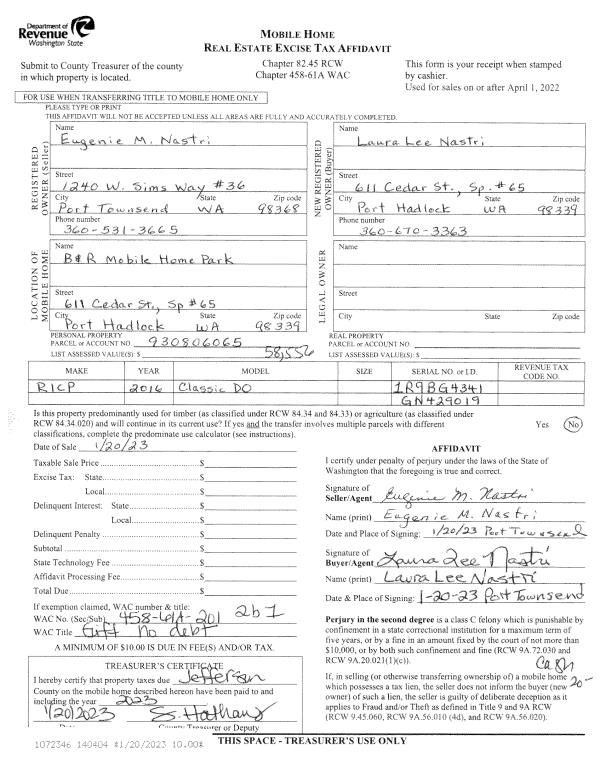 Department of
Revenue
Washington State
MOBILE HOME
REAL ESTATE EXCISE TAX AFFIDAVIT
Submit to County Treasurer of the county
in which property is located.
Chapter 82.45 RCW
Chapter 458-61A WAC
This form is your receipt when stamped
by cashier.
Used for sales on or after April 1, 2022
FOR USE WHEN TRANSFERRING TITLE TO MOBILE HOME ONLY
PLEASE TYPE OR PRINT
THIS AFFIDAVIT WILL NOT BE ACCEPTED UNLESS ALL AREAS ARE FULLY AND ACCURATELY COMPLETED.
REGISTERED
OWNER (Seller)
Name
Eugenie M. Nastri
Street
1240 W. Sims Way #36
City State Zip code
Port Townsend WA 98368
Phone number
360-531-3665
NEW REGISTERED
OWNER (Buyer)
Name
Laura Lee Nastri
Street
611 Cedar St., Sp. #65
City State Zip code
Port Hadlock WA 98339
Phone number
360-670-3363
LOCATION OF
MOBILE HOME
Name
B&R Mobile Home Park
Street
611 Cedar St., Sp #65
City State Zip code
Port Hadlock WA 98339
PERSONAL PROPERTY
PARCEL or ACCOUNT NO. 930806065
LIST ASSESSED VALUE(S): $ 58,556
LEGAL OWNER
Name
Street
City State Zip code
REAL PROPERTY
PARCEL or ACCOUNT NO.
LIST ASSESSED VALUE(S): $
MAKE YEAR MODEL SIZE SERIAL NO. or I.D. REVENUE TAX
CODE NO.
RICP 2016 Classic DO 1R9BG4341
GN429019
Is this property predominantly used for timber (as classified under RCW 84.34 and 84.33) or agriculture (as classified under
RCW 84.34.020) and will continue in its current use? If yes and the transfer involves multiple parcels with different
classifications, complete the predominate use calculator (see instructions). Yes No
Date of Sale 1/20/23
Taxable Sale Price $
Excise Tax: State $
Local $
Delinquent Interest: State $
Local $
Delinquent Penalty $
Subtotal $
State Technology Fee $
Affidavit Processing Fee $
Total Due $
If exemption claimed, WAC number & title:
WAC No. (Sec/Sub) 458-61A-201 2b1
WAC Title Gift no debt
A MINIMUM OF $10.00 IS DUE IN FEE(S) AND/OR TAX.
TREASURER'S CERTIFICATE
I hereby certify that property taxes due Jefferson
County on the mobile home described hereon have been paid to and
including the year 2023
1/20/2023 S. Hathaway
County Treasurer or Deputy
AFFIDAVIT
I certify under penalty of perjury under the laws of the State of
Washington that the foregoing is true and correct.
Signature of
Seller/Agent Eugenie M. Nastri
Name (print) Eugenie M. Nastri
Date and Place of Signing: 1/20/23 Port Townsend
Signature of
Buyer/Agent Laura Lee Nastri
Name (print) Laura Lee Nastri
Date & Place of Signing: 1-20-23 Port Townsend
Perjury in the second degree is a class C felony which is punishable by
confinement in a state correctional institution for a maximum term of
five years, or by a fine in an amount fixed by the court of not more than
$10,000, or by both such confinement and fine (RCW 9A.72.030 and
RCW 9A.20.021(1)(c)).
Cash
20-
If, in selling (or otherwise transferring ownership of) a mobile home
which possesses a tax lien, the seller does not inform the buyer (new
owner) of such a lien, the seller is guilty of deliberate deception as it
applies to Fraud and/or Theft as defined in Title 9 and 9A RCW
(RCW 9.45.060, RCW 9A.56.010 (4d), and RCW 9A.56.020).
1072346 140404 #1/20/2023 10.00#
THIS SPACE - TREASURER'S USE ONLY